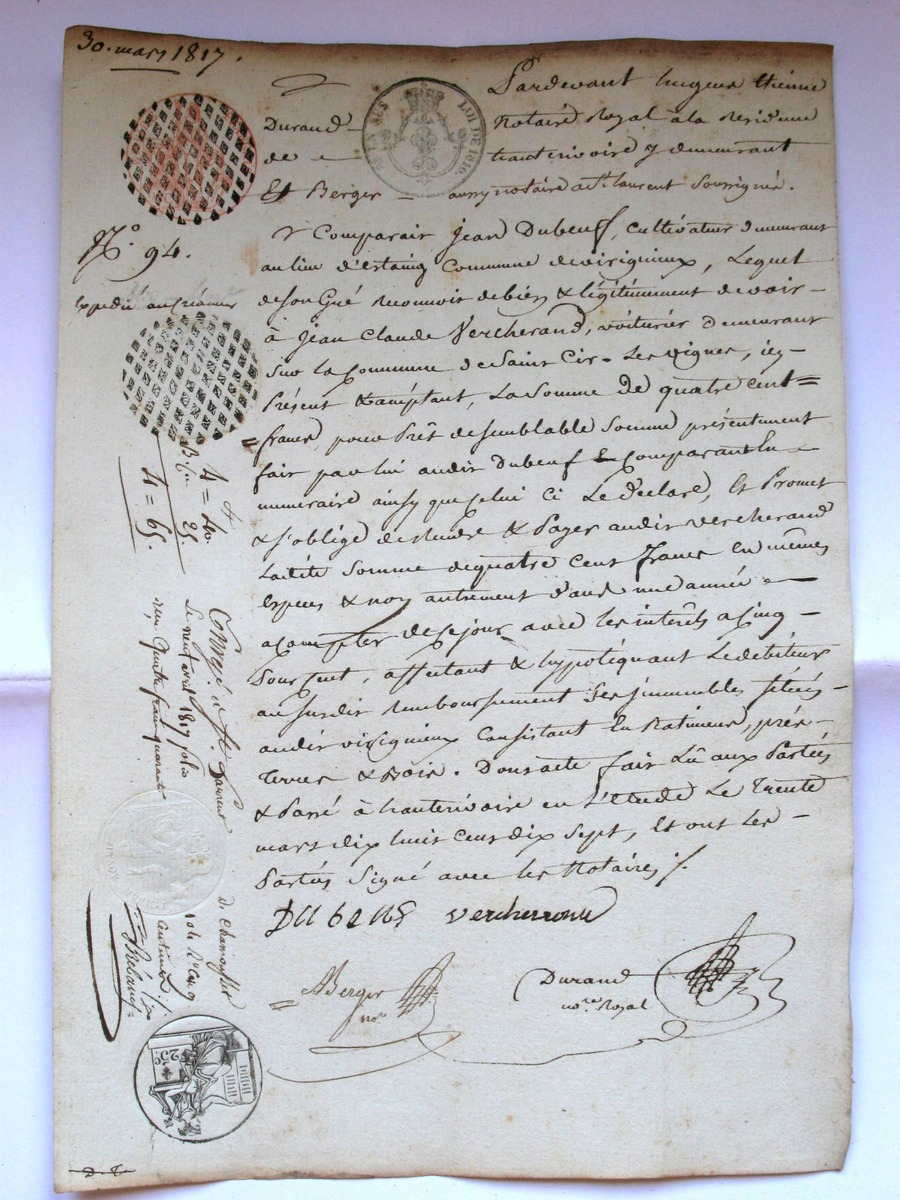 30. mars 1817.
Pardevant hugues Etienne
Durand Notaire Royal à la Residence
de hauterivoire y demeurant
Et Berger aussy notaire a St laurent Soussignés.
EN SUS LOI DE 1816
N.° 94.
Expedié au créancier
Comparair Jean Dubeuf, cultivateur demeurant
au lieu d'estaing Commune de virigneux, Lequel
de son Gré reconnoit debien & légitimement devoir
à Jean Claude Vercherand, voiturier demeurant
Sur la Commune de Saint Cir-Les vignes, icy
Présent & acceptant, La Somme De quatre cent=
=francs, pour Prêt de semblable Somme présentement
fait par lui audit Dubeuf Comparant En
numeraire ainsy que celui ci Le Declare, Et Promet
& s'oblige de rendre & Payer audit vercherand
Ladite Somme de quatre Cent francs En mêmes
Especes & non autrement Dans une année
a compter de ce jour avec les intérêts a Cinq
Pour Cent, affectant & hypotéquant Le debiteur
au susdit remboursement Ses immeubles situés
audit virigneux Consistant En Batiments, prés
Terres & Bois. Dont acte fait Lû aux Parties
& Passé à hauterivoire en L'Etude Le Trente
mars dix huit Cent dix Sept, Et ont Les
Parties Signé avec les Notaires ./.
DU bEUf vercherand
Berger
nore
Durand
no.re Royal
4 = 40.
25.
4 = 65.
Enregé à St Laurent
Le neuf avril 1817 folio
reçu Quatre francs quarante
25c.